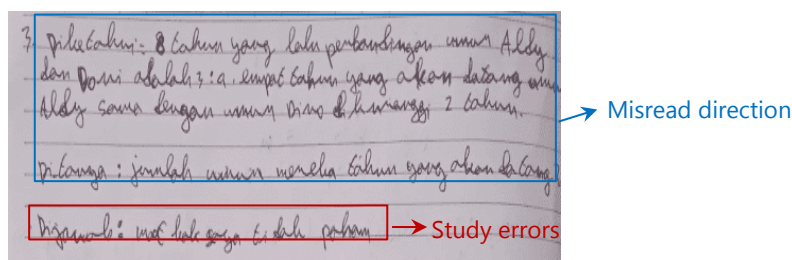 3. Diketahui: 8 tahun yang lalu perbandingan umur Aldy
dan Doni adalah 3:a. empat tahun yang akan datang umur
Aldy sama dengan umur Dino dikurangi 2 tahun.
Misread direction
Ditanya: jumlah umur mereka tahun yang akan datang?
Dijawab: maaf kak saya tidak paham
Study errors